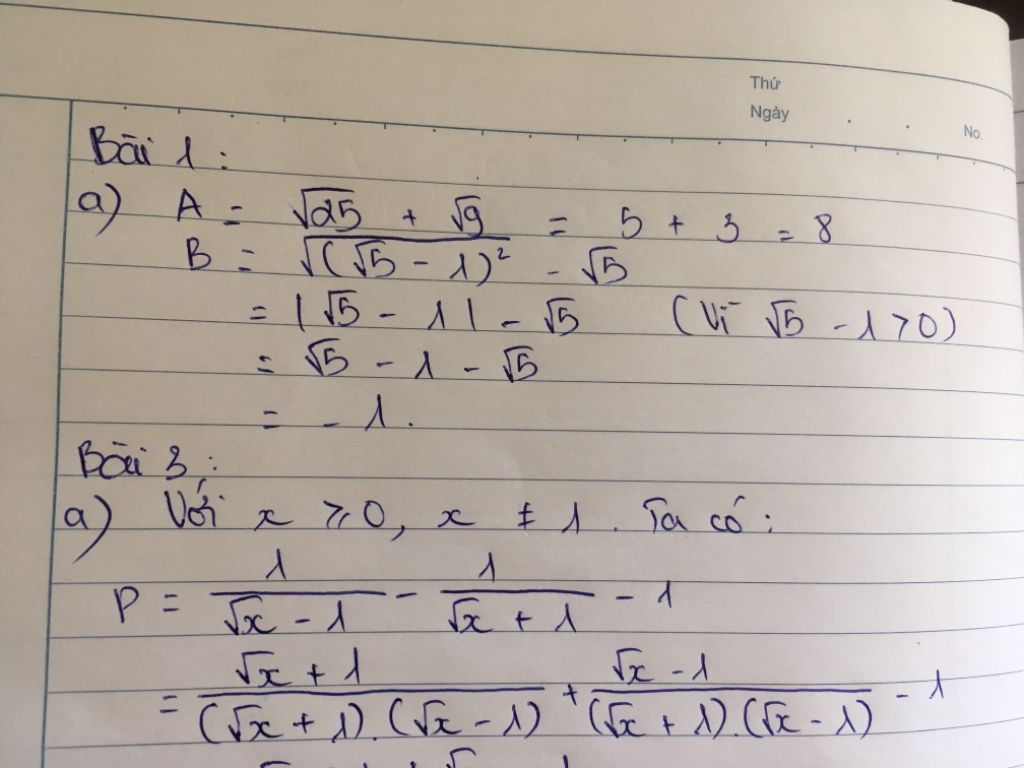 Thứ
Ngày
No.
Bài 1:
a) A = √25 + √9 = 5 + 3 = 8
B = √(√5 - 1)² - √5
= |√5 - 1| - √5 (Vì √5 - 1 > 0)
= √5 - 1 - √5
= - 1.
Bài 3:
a) Với x ≥ 0, x ≠ 1. Ta có:
P = 1/(√x - 1) - 1/(√x + 1) - 1
= (√x + 1)/((√x + 1).(√x - 1)) + (√x - 1)/((√x + 1).(√x - 1)) - 1